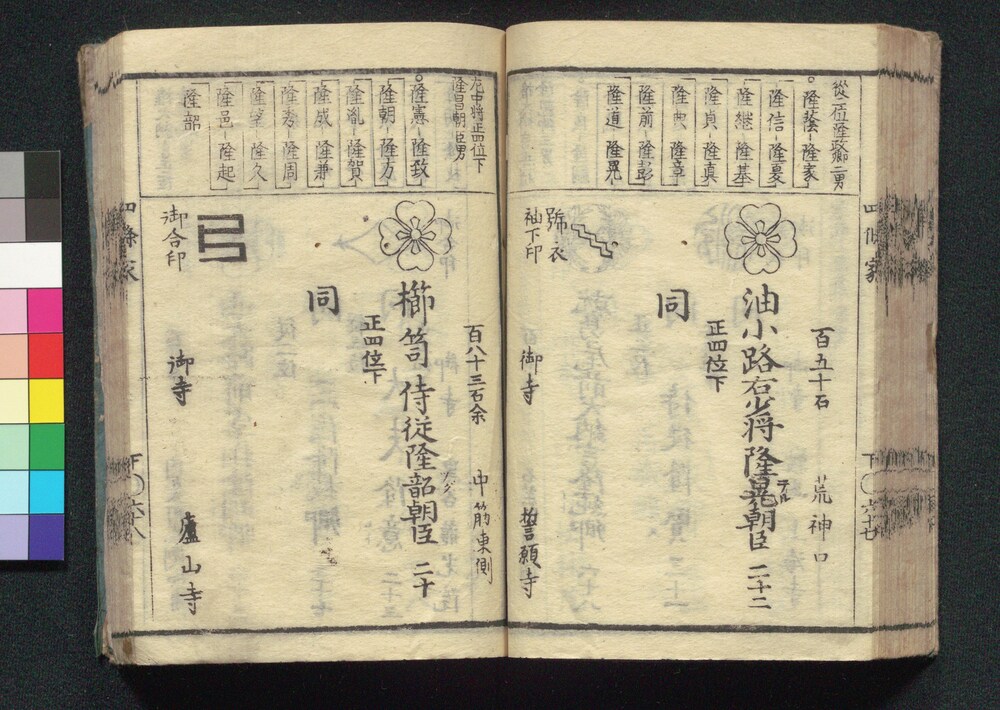 四條家
下〇六十七
從一位隆政卿二男
隆蔭 隆家
隆信 隆夏
隆継 隆基
隆貞 隆真
隆典 隆章
隆前 隆彭
隆道 隆晃
百五十石 荒神口
油小路右少将隆晃朝臣 二十二
テル
正四位下
同
號衣
袖下印
御寺 誓願寺
左中将正四位下
隆昌朝臣男
隆憲 隆致
隆朝 隆方
隆胤 隆賀
隆成 隆兼
隆秀 隆周
隆望 隆久
隆邑 隆起
隆韶
百八十三石余 中筋東側
櫛笥侍従隆韶朝臣 二十
ツグ
正四位下
同
御合印
御寺 廬山寺
四條家
下〇六十八